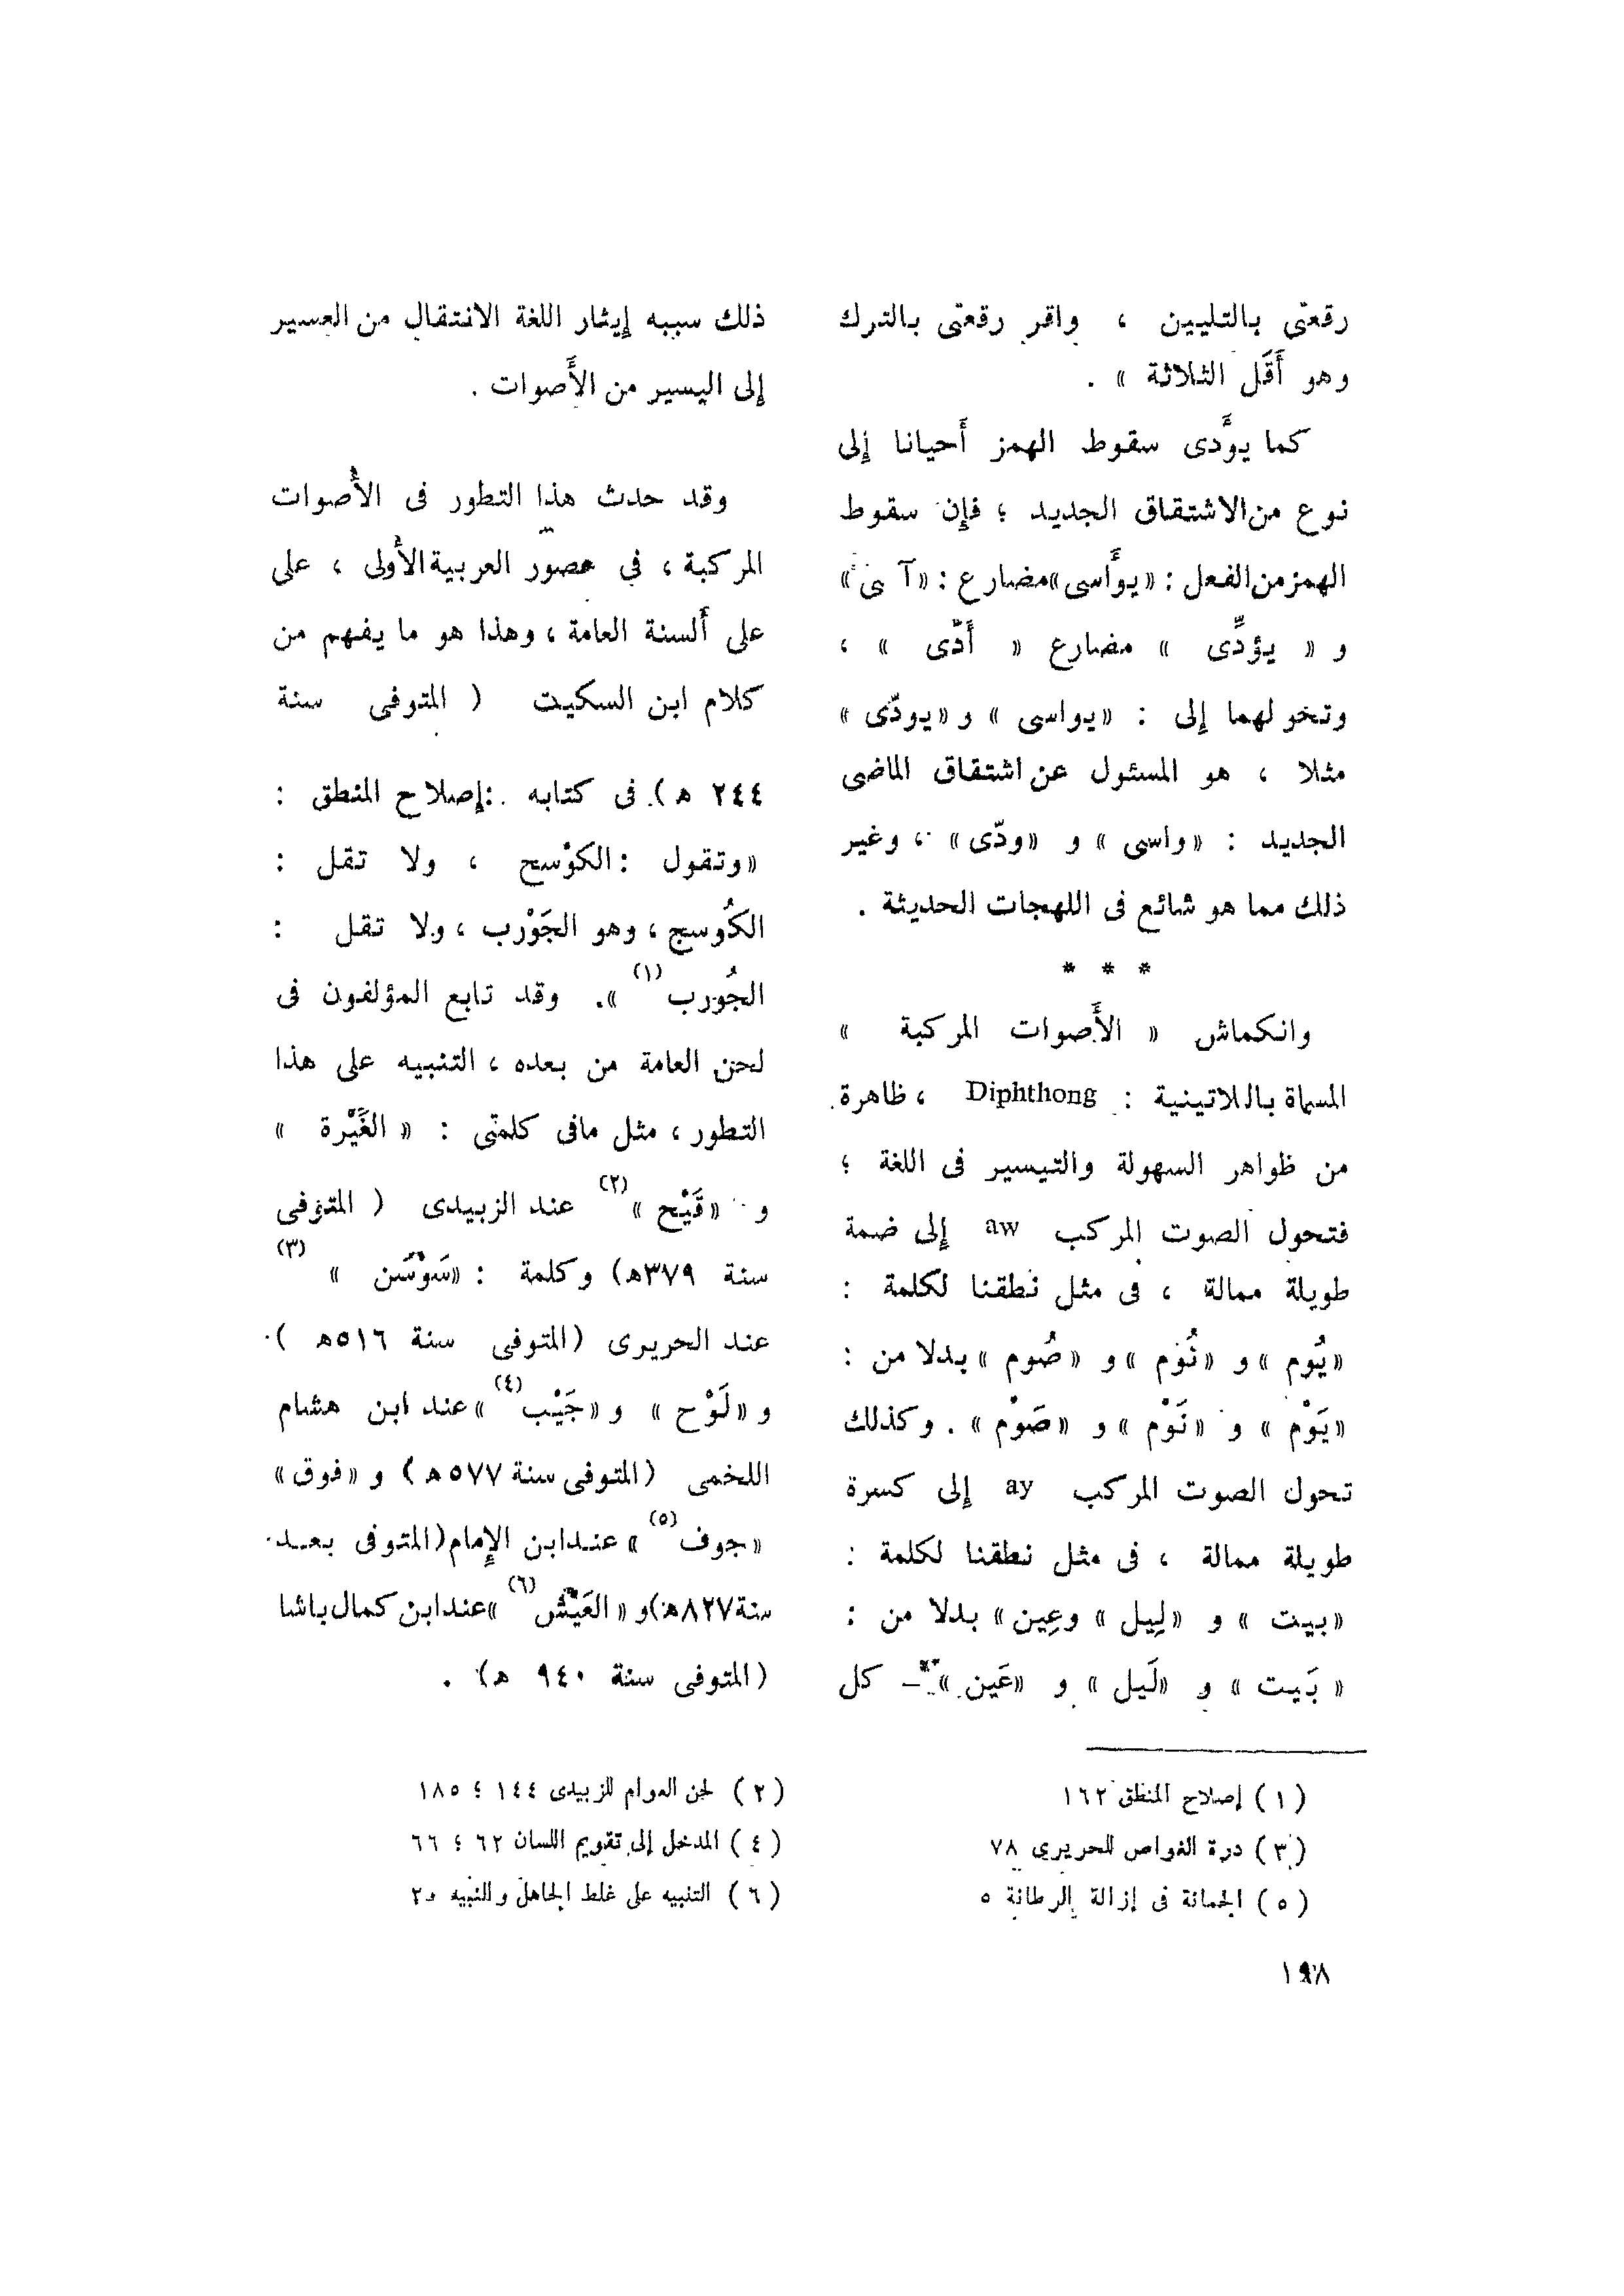 رقعتى بالتليين ، واقر رقعتى بالترك
وهو أَقَل الثلاثة » .
كما يوَّدى سقوط الهمز أَحيانا إلى
نوع من الاشتقاق الجديد ؛ فإن سقوط
الهمز من الفعل : «يوَّاسى» مضارع :
و « يؤدِّى » مضارع « أَدّى » ،
وتحولهما إلى : «يواسى » و«يودّى »
مثلا ، هو المسئول عن اشتقاق الماضى
الجديد : «واسى » و «ودّى» ، وغير
ذلك مما هو شائع فى اللهجات الحديثة .
* * *
وانكماش « الأَصوات المركبة »
المسماة باللاتينية : Diphthong ، ظاهرة
من ظواهر السهولة والتيسير فى اللغة ؛
فتحول الصوت المركب aw إلى ضمة
طويلة ممالة ، فى مثل نطقنا لكلمة :
«يُوم » و «نُوم » و «صُوم » بدلا من :
«يَوْم » و «نَوْم » و «صَوْم » . وكذلك
تحول الصوت المركب ay إلى كسرة
طويلة ممالة ، فى مثل نطقنا لكلمة :
«بيت » و «لِيل » وعِين» بدلا من :
« بَيت » و «لَيل » و «عَين » – كل
ذلك سببه إيثار اللغة الانتقال من العسير
إلى اليسير من الأَصوات .
وقد حدث هذا التطور فى الأَصوات
المركبة ، فى عصور العربية الأُولى ، على
على أَلسنة العامة ، وهذا هو ما يفهم من
كلام ابن السكيت ( المتوفى سنة
٢٤٤ هـ) فى كتابه : إصلاح المنطق :
«وتقول : الكوْسج ، ولا تقل :
الكُوسج ، وهو الجَوْرب ، ولا تقل :
الجُورب(١) ». وقد تابع المؤلفون فى
لحن العامة من بعده ، التنبيه على هذا
التطور ، مثل مافى كلمتى : « الغَيْرة »
و «قَيْح »(٢) عند الزبيدى ( المتوفى
سنة ٣٧٩هـ) وكلمة : «سَوْسَن »(٣)
عند الحريرى (المتوفى سنة ٥١٦هـ )
و «لَوْح » و «جَيْب(٤) » عند ابن هشام
اللخمى (المتوفى سنة ٥٧٧هـ) و «فوق»
«جوف(٥) » عند ابن الإمام (المتوفى بعد
سنة ٨٢٧هـ) و « العَيْش(٦) » عند ابن كمال باشا
(المتوفى سنة ٩٤٠ هـ) .
(١) إصلاح المنطق ١٦٢
(٢) لحن العوام للزبيدى ١٤٤ ؛ ١٨٥
(٣) درة الغواص للحريرى ٧٨
(٤) المدخل إلى تقويم اللسان ٦٢ ؛ ٦٦
(٥) الجمانة فى إزالة الرطانة ٥
(٦) التنبيه على غلط الجاهل والنبيه
١٩٨